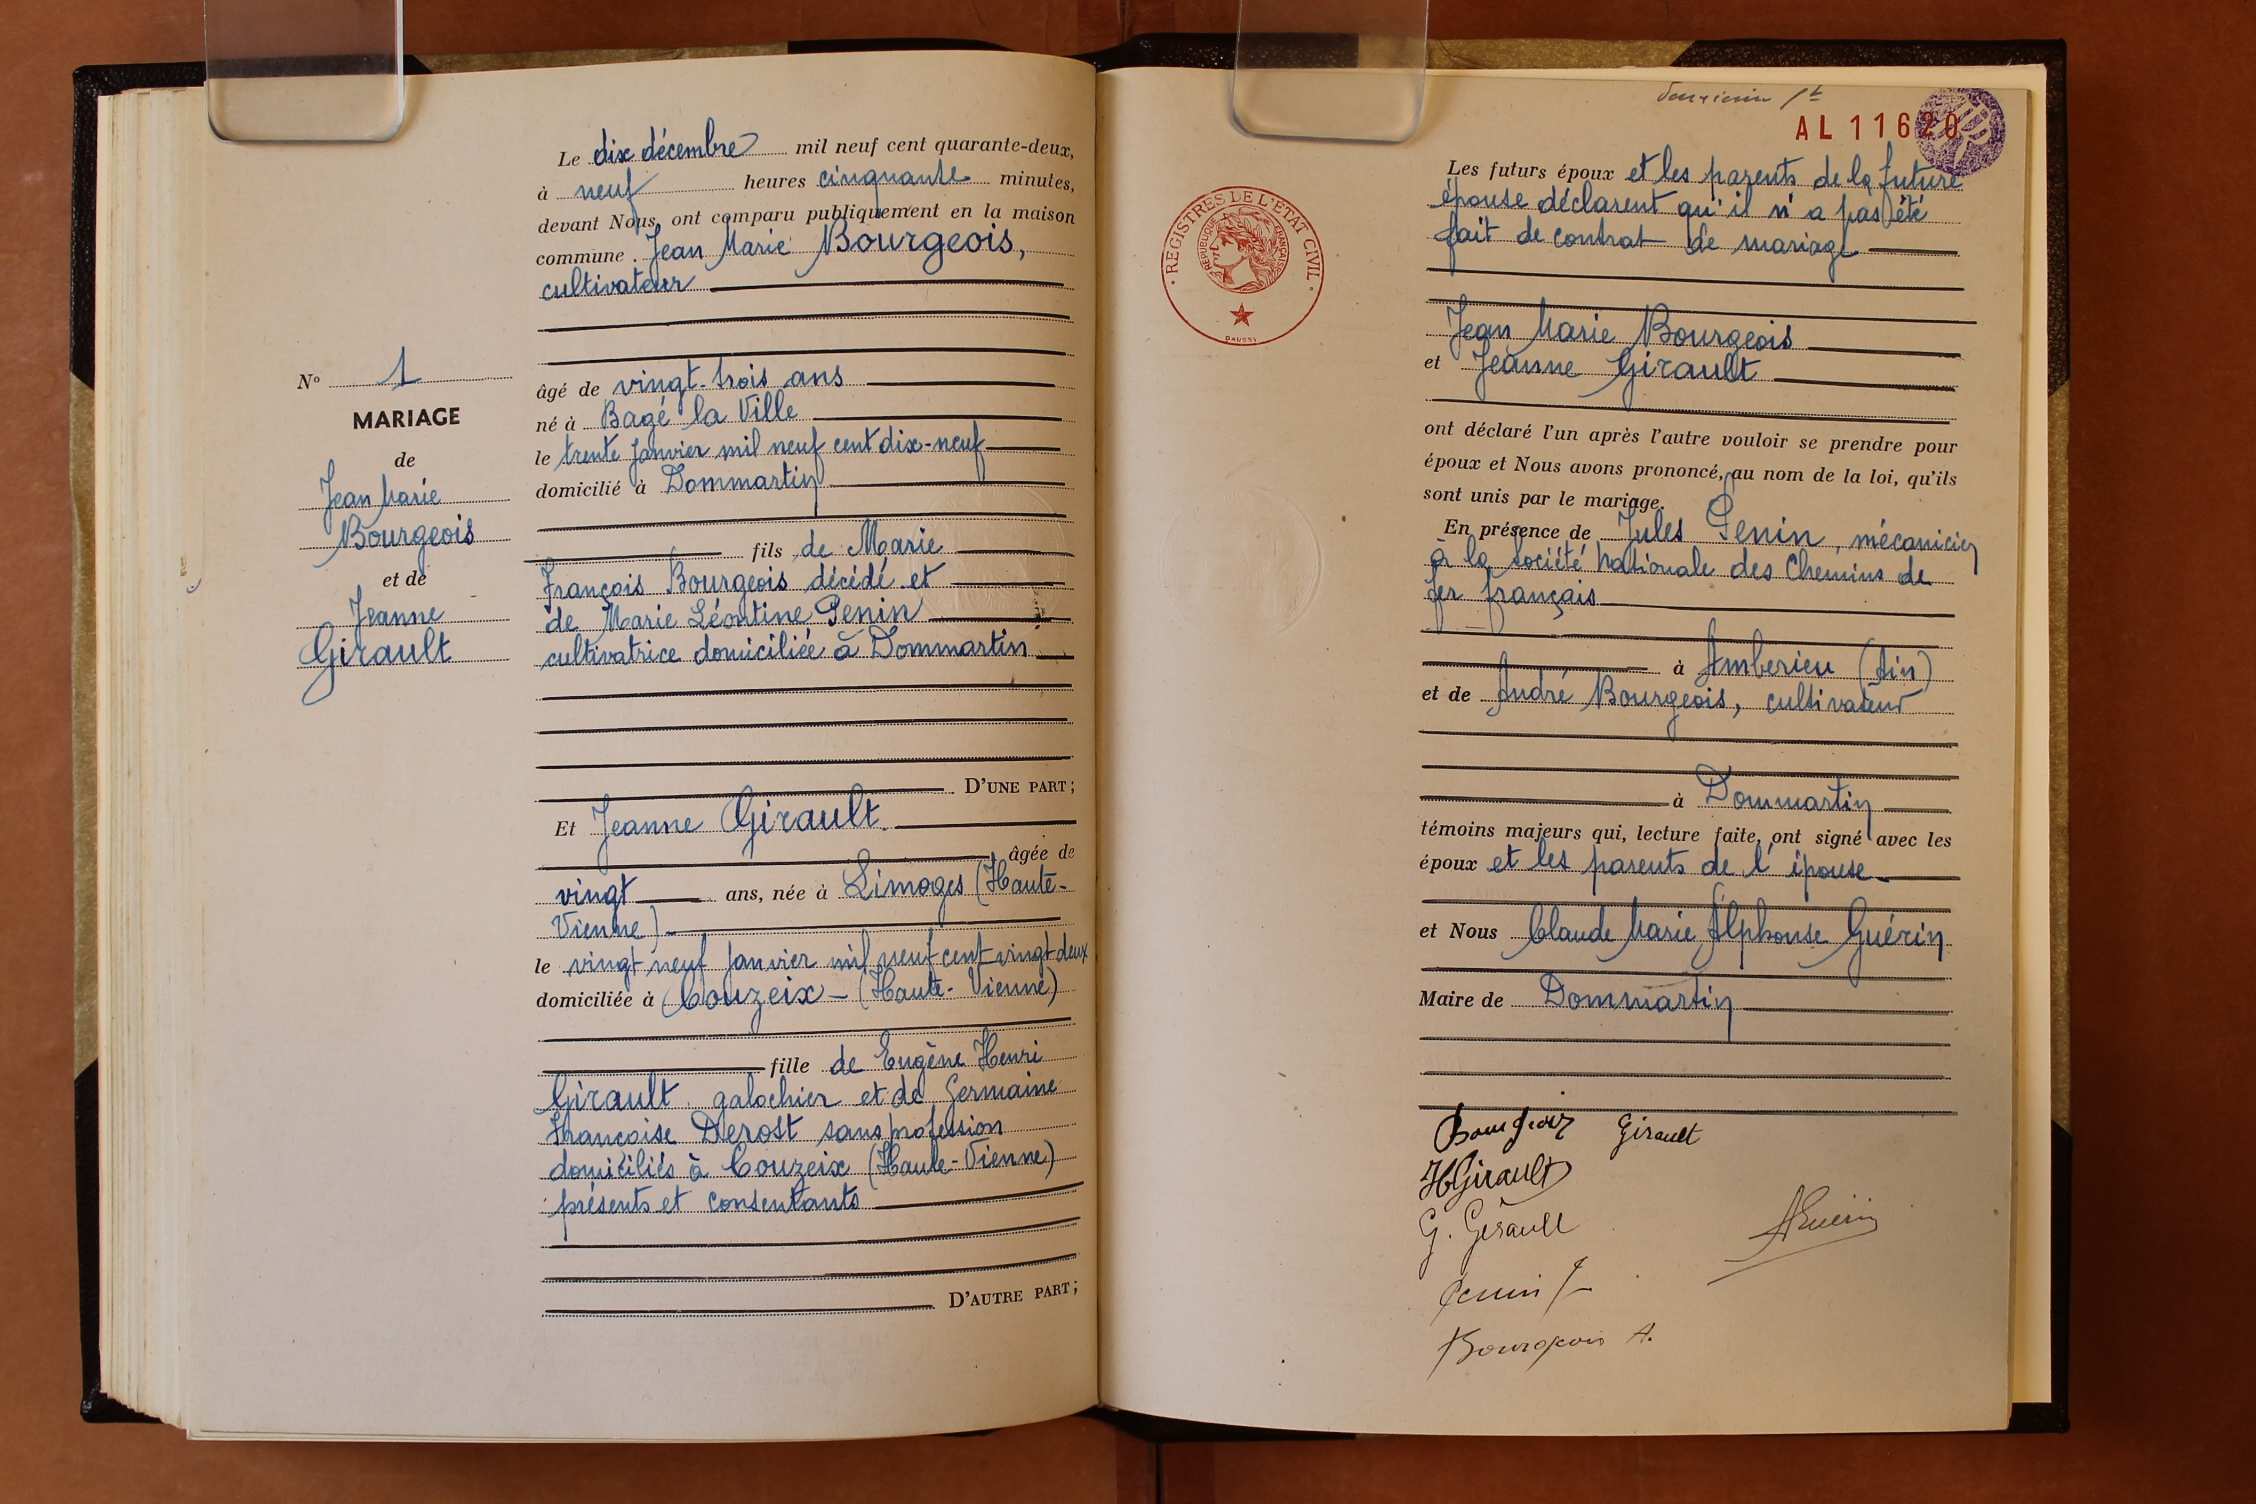 Le dix décembre mil neuf cent quarante-deux,
à neuf heures cinquante minutes,
devant Nous, ont comparu publiquement en la maison
commune. Jean Marie Bourgeois,
cultivateur
âgé de vingt-trois ans
né à Bagé la Ville
le trente janvier mil neuf cent dix-neuf
domicilié à Dommartin
fils de Marie
François Bourgeois décédé et
de Marie Léontine Genin
cultivatrice domiciliée à Dommartin
D'UNE PART;
Et Jeanne Girault
âgée de
vingt ans, née à Limoges (Haute-
Vienne)
le vingt neuf janvier mil neuf cent vingt deux
domiciliée à Couzeix - (Haute-Vienne)
fille de Eugène Henri
Girault galochier et de Germaine
Françoise Derost sans profession
domiciliés à Couzeix (Haute-Vienne)
présents et consentants
D'AUTRE PART;
No 1
MARIAGE
de
Jean Marie
Bourgeois
et de
Jeanne
Girault
AL 11620
REGISTRES DE L'ÉTAT CIVIL
RÉPUBLIQUE FRANÇAISE
DAUSSY
Les futurs époux et les parents de la future
épouse déclarent qu'il n'a pas été
fait de contrat de mariage
Jean Marie Bourgeois
et Jeanne Girault
ont déclaré l'un après l'autre vouloir se prendre pour
époux et Nous avons prononcé, au nom de la loi, qu'ils
sont unis par le mariage.
En présence de Jules Genin, mécanicien
à la Société Nationale des Chemins de
fer français
à Amberieu (Ain)
et de André Bourgeois, cultivateur
à Dommartin
témoins majeurs qui, lecture faite, ont signé avec les
époux et les parents de l'épouse
et Nous Claude Marie Alphonse Guérin
Maire de Dommartin
Bourgeois Girault
HGirault
G. Girault
AGuérin
Genin J
Bourgeois A.